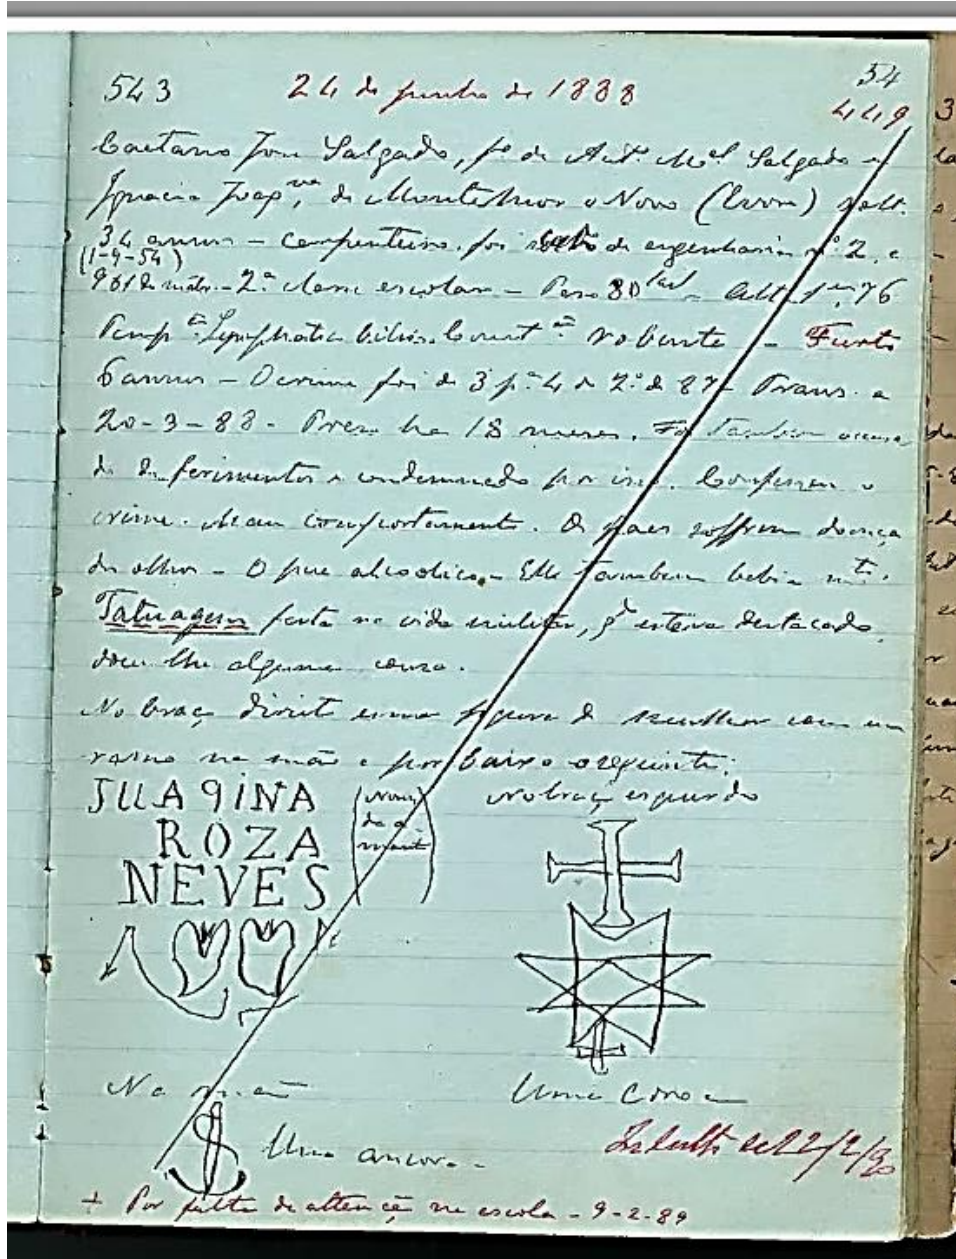 543 24 de junho de 1888 54
449
Caetano José Salgado, fº de Antº Mel Salgado e
Ignacia Joaqna, de Montemor o Novo (Evora) solt.
34 annos - carpenteiro. foi de engenharia nº 2, e
(1-9-54)
961 de matr. - 2ª classe escolar - Peso 80 - Alt. 1m,76
Temp Lymphatico bilis. Const robusta - Furto
6 annos - O crime foi de 3 pª 4 de 2º de 87 - Trans. a
20-3-88 - Preso ha 18 meses. Foi tambem accusa
do de ferimentos e condemnado por isso. Confessou o
crime. Mau comportamento. Os paes soffrem doença
de olhos - O pae alcoolico - Elle tambem bebia mto.
Tatuagem feita na vida militar, qdo esteve destacado,
doeu lhe alguma cousa.
No braço direito uma figura de mulher com um
ramo na mão e por baixo o seguinte:
JUAQINA
ROZA
NEVES
(Nome
da a
mante)
No braço esquerdo
Na mão
Uma ancora -
Uma coroa
Indulto de 22/2/90
+ Por falta de attenção na escola - 9-2-89